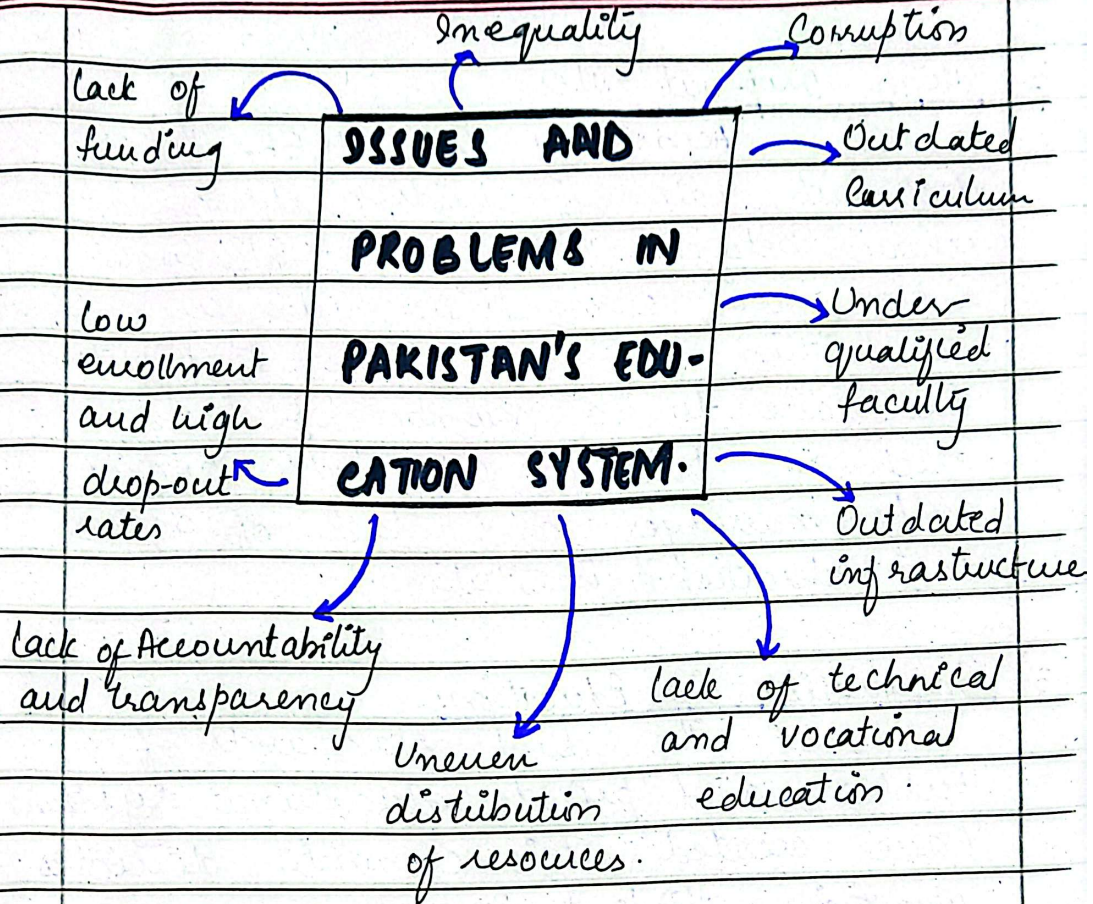 Inequality
Corruption
lack of
funding
ISSUES AND
PROBLEMS IN
PAKISTAN'S EDU-
CATION SYSTEM.
Outdated
Curriculum
Under
qualified
faculty
Outdated
infrastructure
low
enrollment
and high
drop-out
rates
lack of Accountability
and transparency
Uneven
distribution
of resources.
lack of technical
and vocational
education.